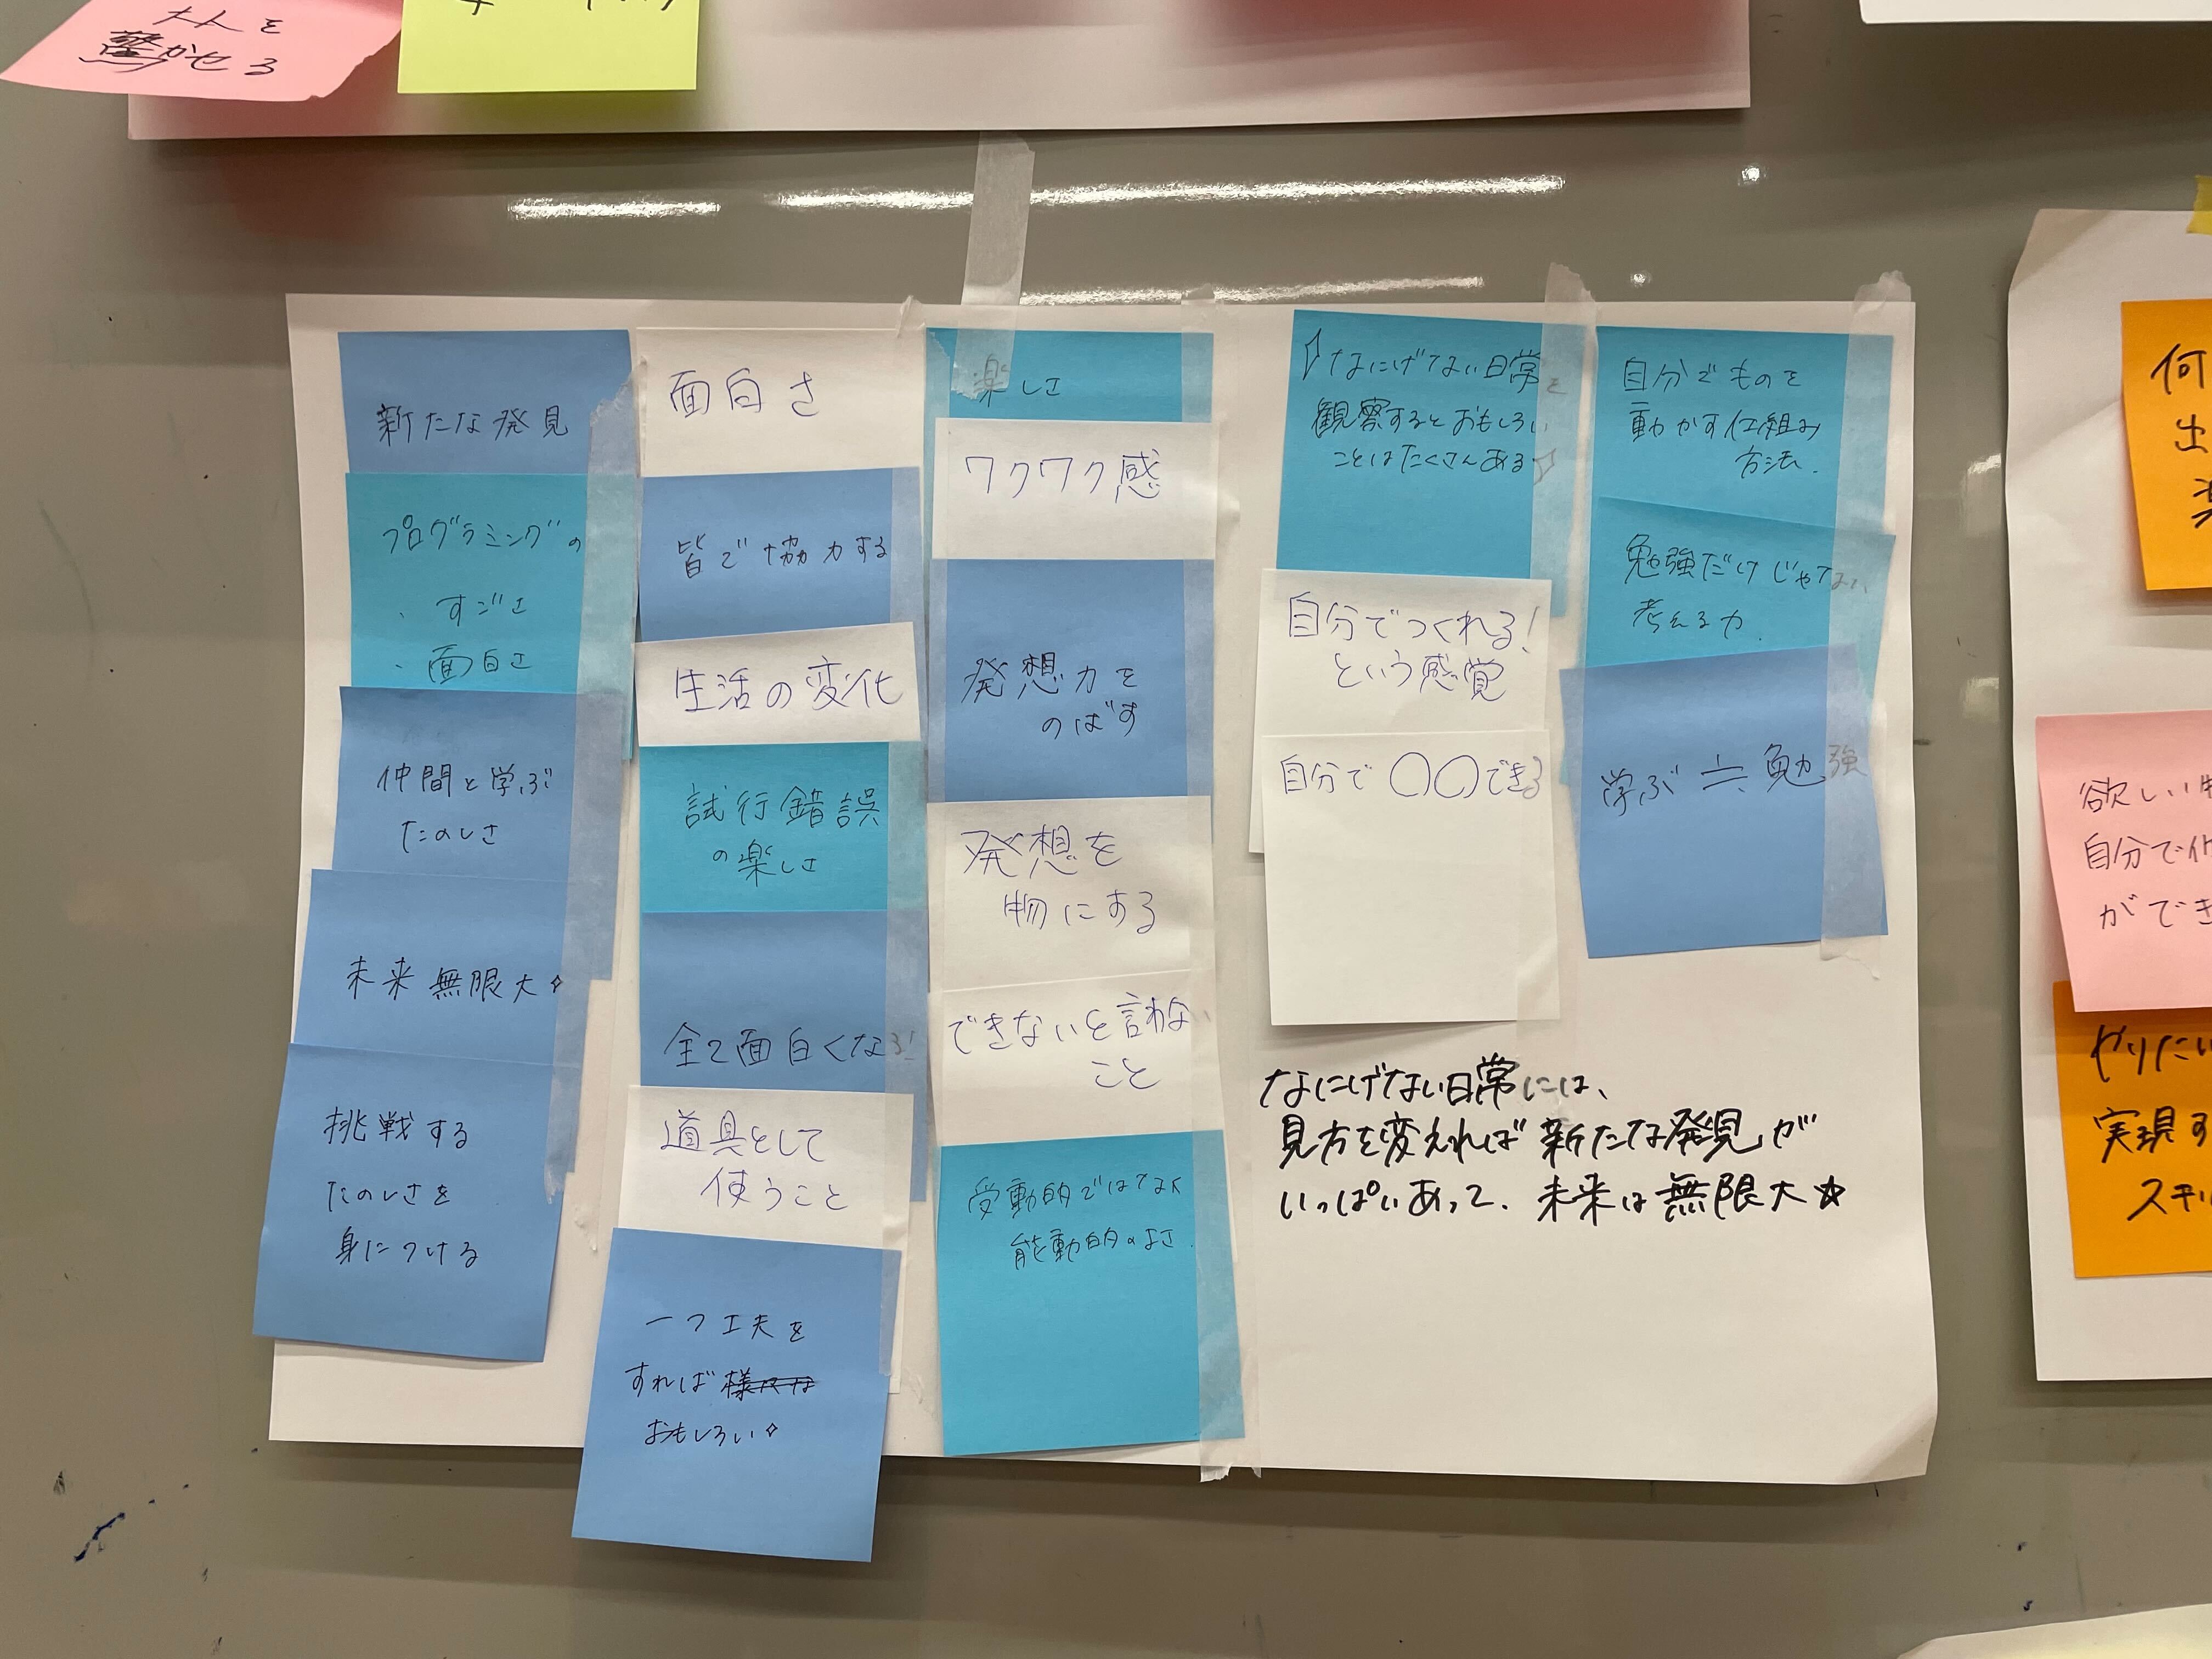 大人を
驚かせる
新たな発見
プログラミングの
・すごさ
・面白さ
仲間と学ぶ
たのしさ
未来無限大✧
挑戦する
たのしさを
身につける
面白さ
皆で協力する
生活の変化
試行錯誤
の楽しさ
全て面白くなる!
道具として
使うこと
一つ工夫を
すれば
おもしろい✧
楽しさ
ワクワク感
発想力を
のばす
発想を
物にする
できないを言わない
こと
受動的ではなく
能動的のよさ.
なにげない日常を
観察するとおもしろい
ことはたくさんある
自分でつくれる!
という感覚
自分で〇〇できる
自分でものを
動かす仕組み
方法.
勉強だけじゃない、
考える力.
学ぶ≒勉強
なにげない日常には、
見方を変えれば新たな発見が
いっぱいあって、未来は無限大☆
何
出
欲しい
自分で作
ができ
やりたい
実現す
スキル